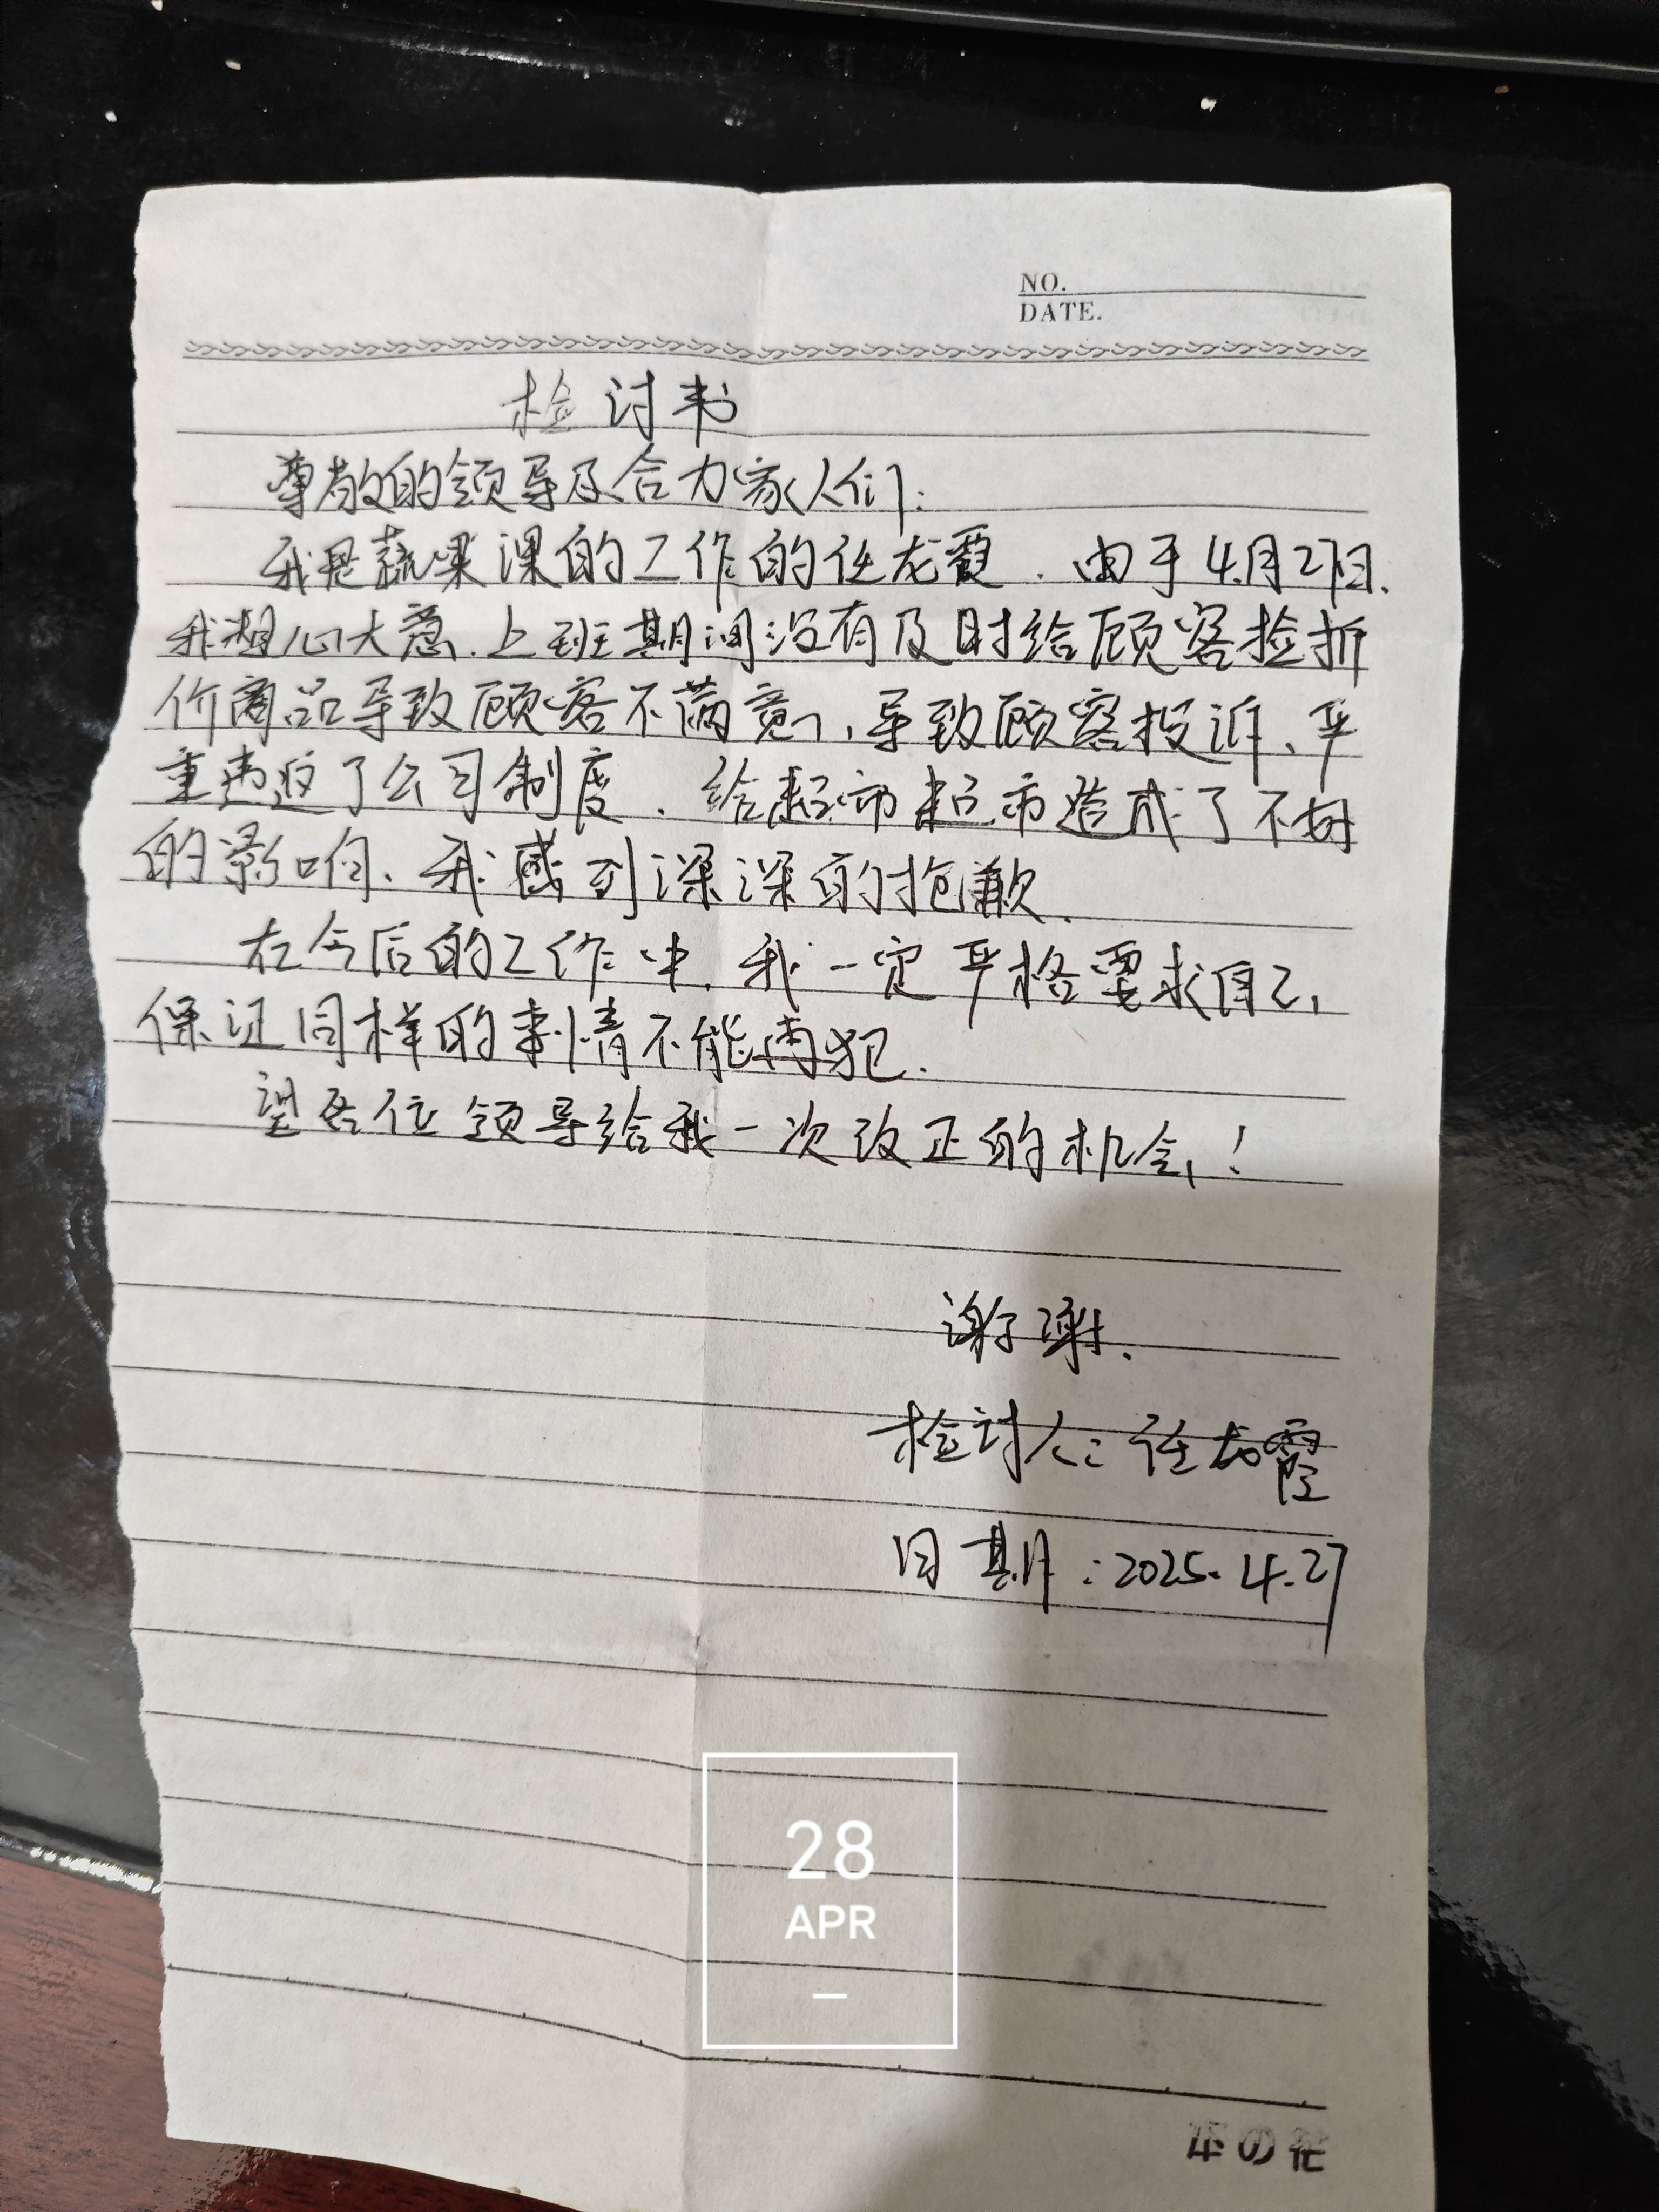 NO.
DATE.
检讨书
尊敬的领导及合力家人们:
我是蔬果课的工作的任龙霞.由于4月27日.
我粗心大意.上班期间没有及时给顾客捡折
价商品导致顾客不满意,导致顾客投诉、严
重违返了公司制度.给超市超市造成了不好
的影响、我感到深深的抱歉.
在今后的工作中.我一定严格要求自己,
保证同样的事情不能再犯.
望各位领导给我一次改正的机会,!
谢谢.
检讨人:任龙霞
日期:2025.4.27
28
APR
の花